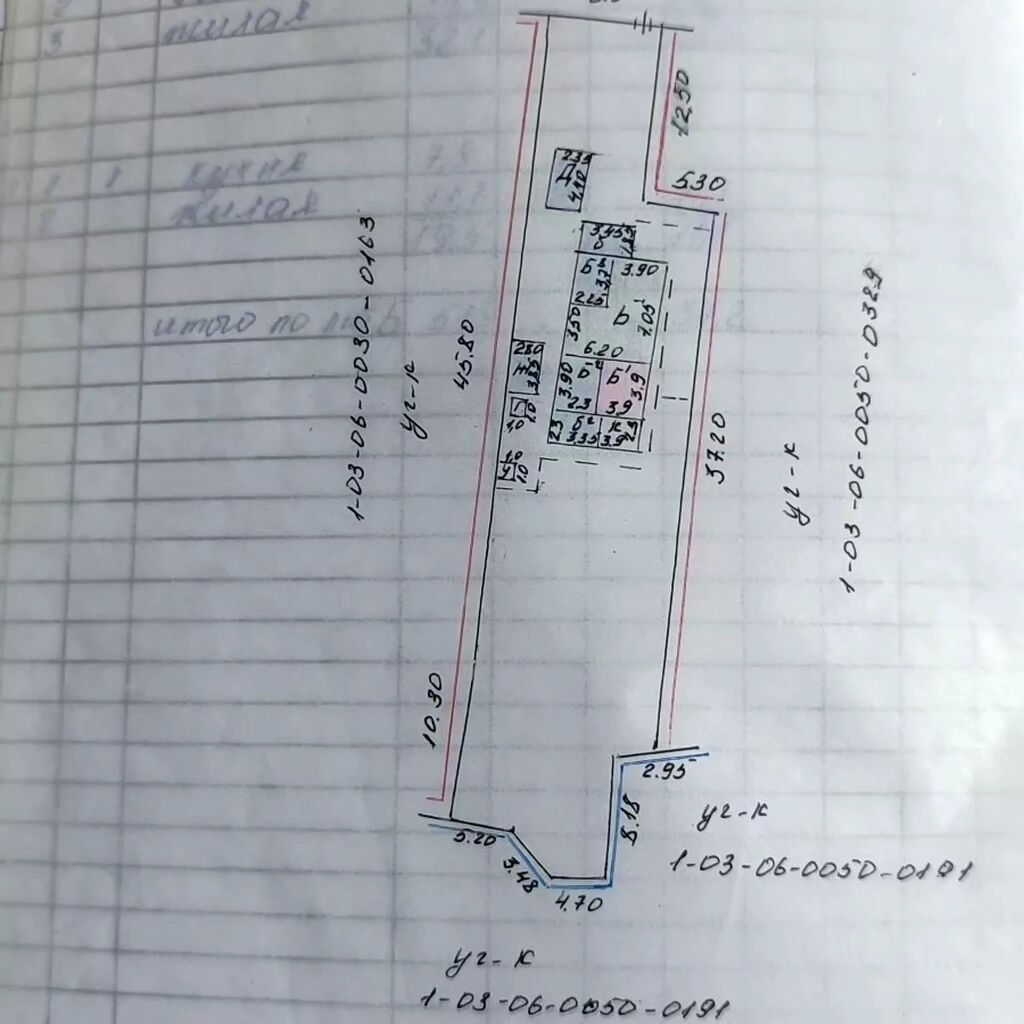 3 жилая 32.1
12.50
2.35
Д
4.40
5.30
3.45
1 1 кухня 7.4
2 жилая
1-03-06-0030-0163
уч-к
45.80
3.90
2.25
3.50
Б
7.05
1-03-06-0050-0329
уч-к
37.20
итого по лит Б
6.20
2.80
3.85
3.90
Б¹
3.9
2.3
3.9
1.0
1.0
2.3
Б²
3.35
К
3.9
2.3
1.0
2.0
10.30
2.95
8.18
5.20
3.48
4.70
уч-к
1-03-06-0050-0191
уч-к
1-03-06-0050-0191